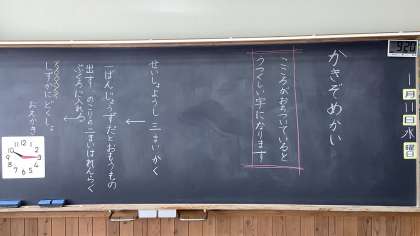 かきぞめかい
こころがおちついていると
うつくしい字になります
せいしょようし二まいかく
一ばんじょうずだとおもうもの
出す。のこりの二まいはれんらく
ぶくろに入れる
しずかにどくしょ
おえかき
月
日
水
曜日
12
1
2
3
4
5
6
7
8
9
10
11